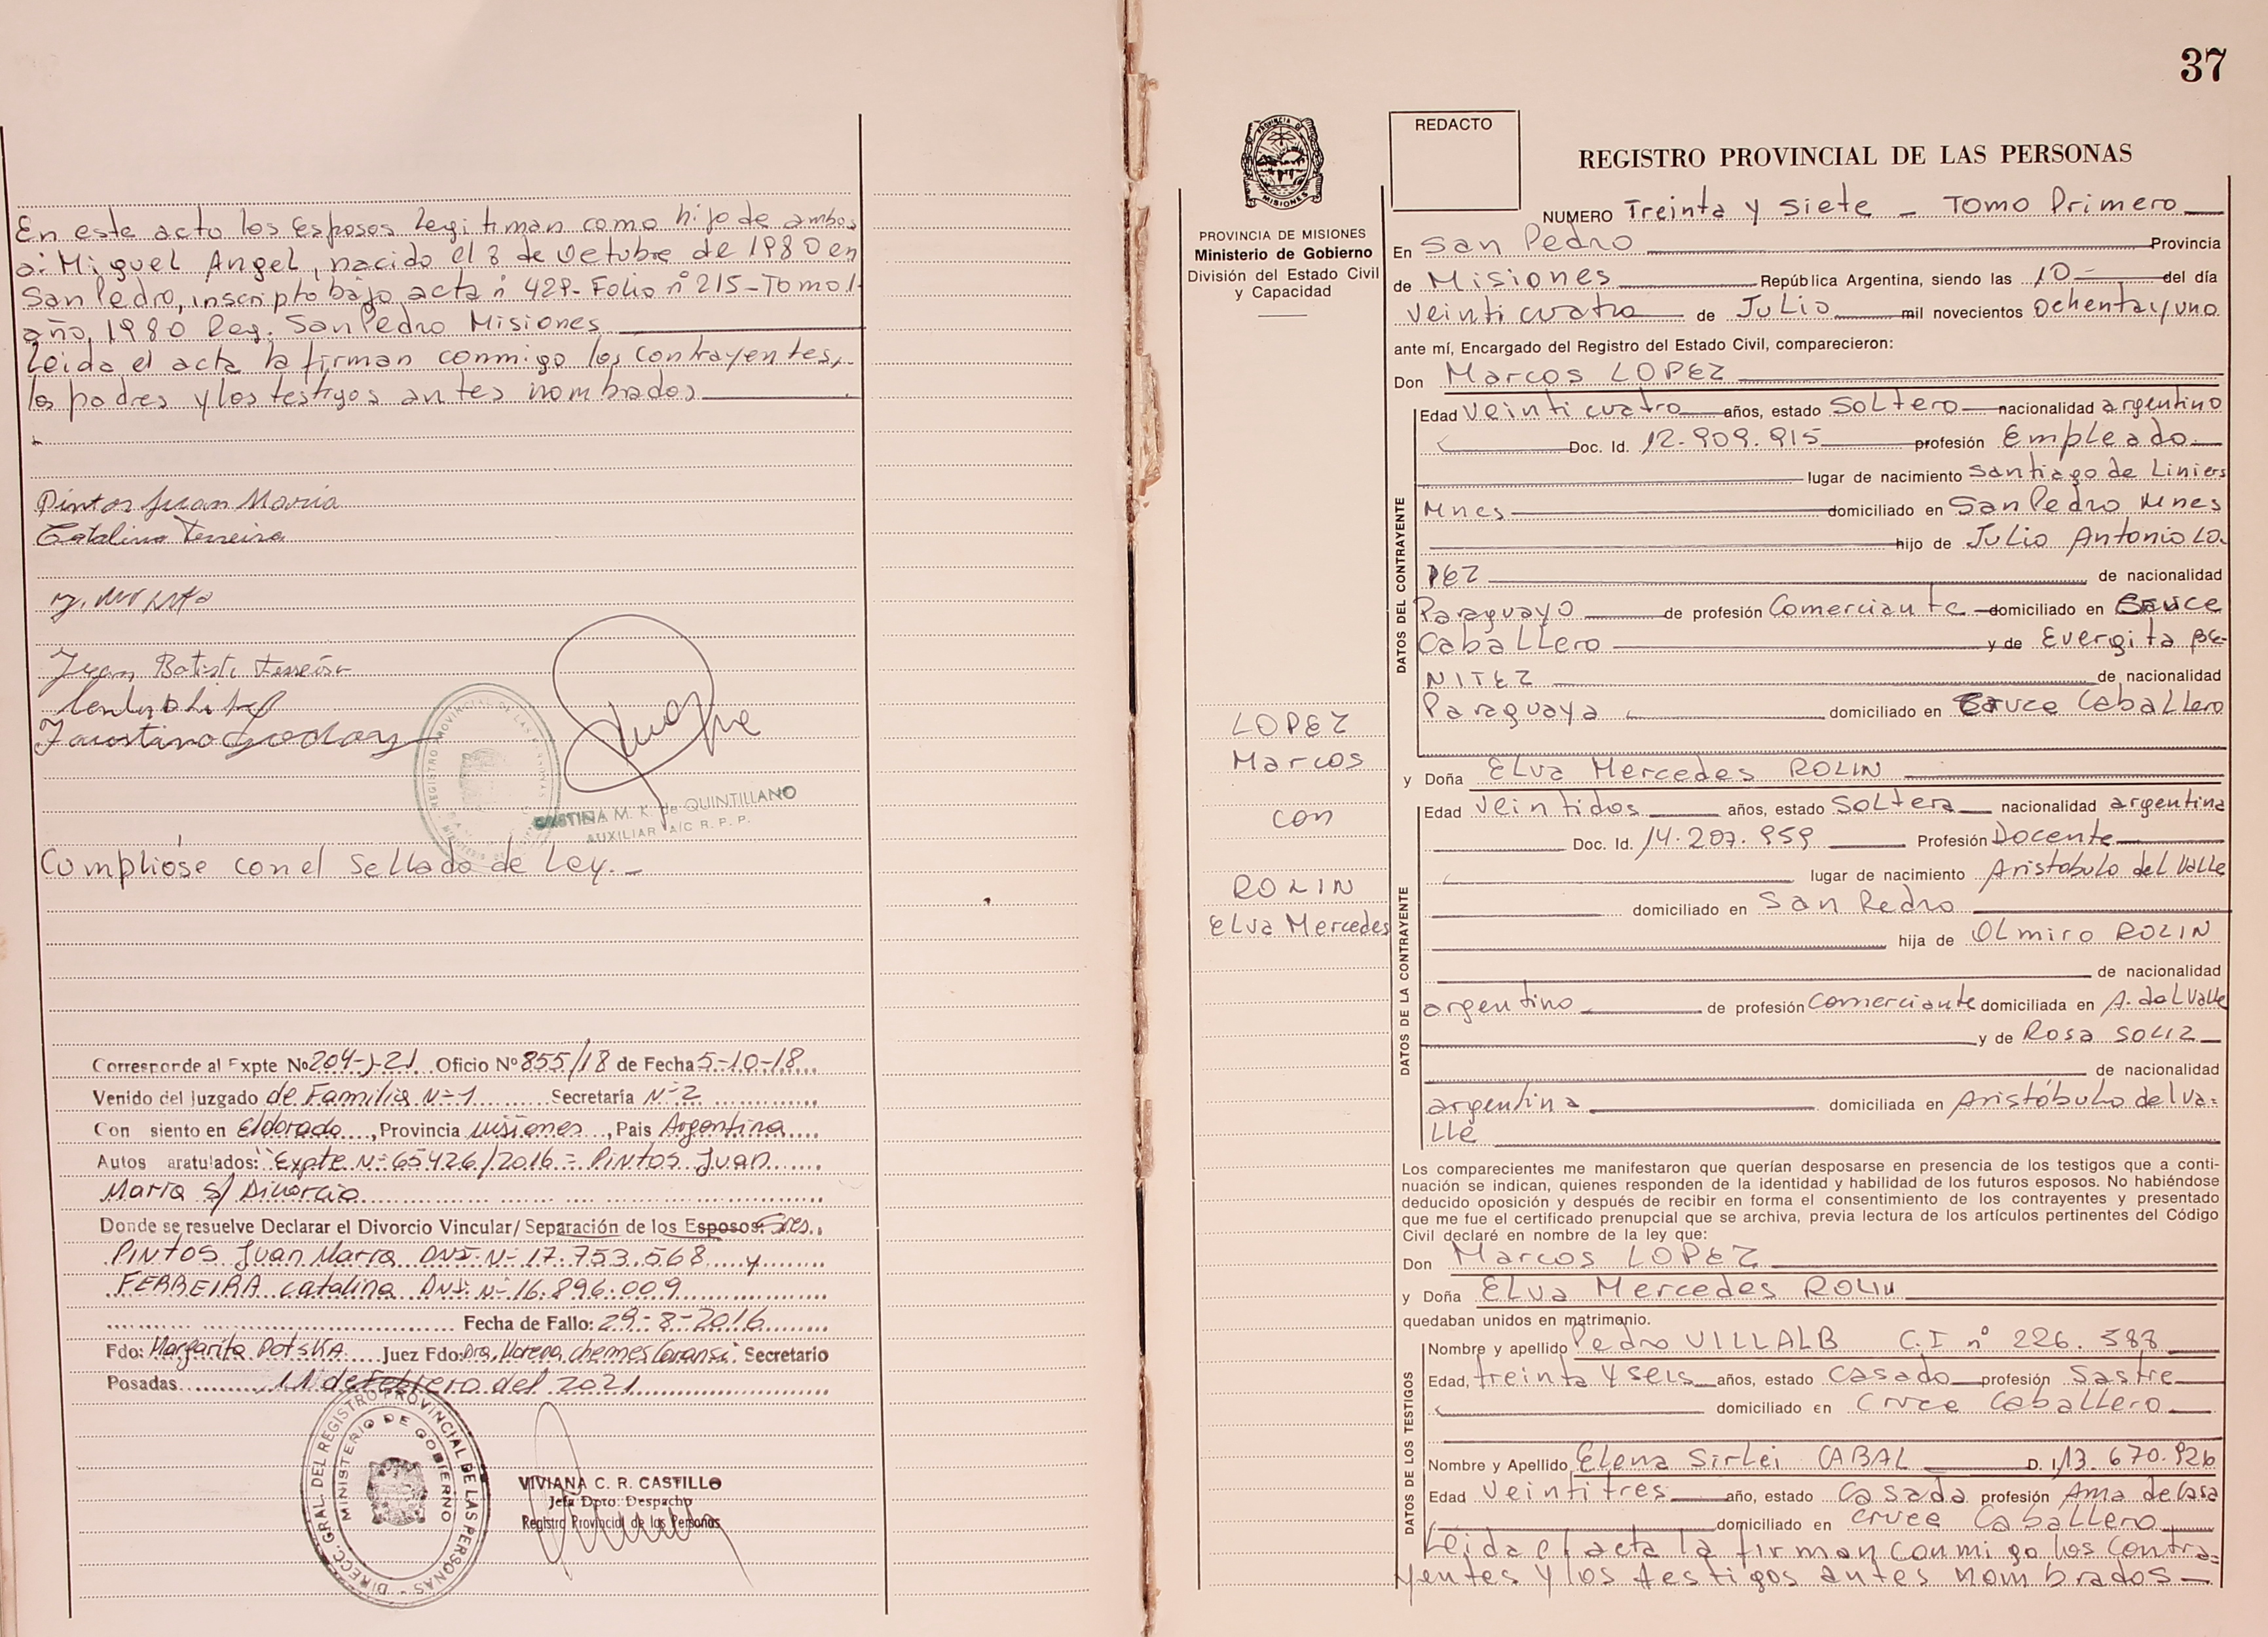 En este acto los esposos legitiman como hijo de ambos
a: Miguel Angel, nacido el 8 de Octubre de 1980 en
San Pedro, inscripto bajo acta nº 429- Folio nº 215-Tomo 1-
año, 1980 Reg. San Pedro Misiones
Leida el acta la firman conmigo los contrayentes,
los padres y los testigos antes nombrados
Pintos Juan Maria
Catalina Ferreira
Juan Batista Ferreira
Faustino Godoy
REGISTRO PROVINCIAL DE LAS PERSONAS
CRISTINA M. K. de QUINTILLANO
AUXILIAR A/C R. P. P.
Cumplióse con el sellado de Ley.-
Corresponde al Expte No 204-J-21 Oficio Nº 855/18 de Fecha 5-10-18
Venido del Juzgado de Familia Nº 1 Secretaría Nº 2
Con siento en Eldorado, Provincia Misiones, Pais Argentina
Autos aratulados: "Expte Nº 65426/2016 = Pintos Juan
Maria s/ Divorcio
Donde se resuelve Declarar el Divorcio Vincular/ Separación de los Esposos: Sres.
PINTOS Juan Maria DNI. Nº 17.753.568 y
FERREIRA Catalina DNI. Nº 16.896.009
Fecha de Fallo: 29-8-2016
Fdo: Margarita Potska Juez Fdo: Dra. Morena Chemes Secretario
Posadas 11 de Febrero del 2021
DIRECC. GRAL. DEL REGISTRO PROVINCIAL DE LAS PERSONAS
MINISTERIO DE GOBIERNO
VIVIANA C. R. CASTILLO
Jefa Dpto. Despacho
Registro Provincial de las Personas
37
PROVINCIA DE MISIONES
PROVINCIA DE MISIONES
Ministerio de Gobierno
División del Estado Civil
y Capacidad
LOPEZ
Marcos
con
ROLIN
Elva Mercedes
REDACTO
REGISTRO PROVINCIAL DE LAS PERSONAS
NUMERO Treinta y siete - Tomo Primero
En San Pedro Provincia
de Misiones República Argentina, siendo las 10- del día
veinticuatro de Julio mil novecientos ochenta y uno
ante mí, Encargado del Registro del Estado Civil, comparecieron:
Don Marcos LOPEZ
DATOS DEL CONTRAYENTE
Edad veinticuatro años, estado Soltero nacionalidad argentino
Doc. Id. 12.909.915 profesión Empleado
lugar de nacimiento Santiago de Liniers
Mnes domiciliado en San Pedro Mnes
hijo de Julio Antonio LO-
PEZ de nacionalidad
Paraguayo de profesión Comerciante domiciliado en Cruce
Caballero y de Evergita BE-
NITEZ de nacionalidad
Paraguaya domiciliado en Cruce Caballero
y Doña Elva Mercedes ROLIN
DATOS DE LA CONTRAYENTE
Edad veintidos años, estado Soltera nacionalidad argentina
Doc. Id. 14.207.959 Profesión Docente
lugar de nacimiento Aristobulo del Valle
domiciliado en San Pedro
hija de Olmiro ROLIN
de nacionalidad
argentino de profesión Comerciante domiciliada en A. del Valle
y de Rosa SOLIZ
de nacionalidad
argentina domiciliada en Aristóbulo del Va=
lle
Los comparecientes me manifestaron que querían desposarse en presencia de los testigos que a conti-
nuación se indican, quienes responden de la identidad y habilidad de los futuros esposos. No habiéndose
deducido oposición y después de recibir en forma el consentimiento de los contrayentes y presentado
que me fue el certificado prenupcial que se archiva, previa lectura de los artículos pertinentes del Código
Civil declaré en nombre de la ley que:
Don Marcos LOPEZ
y Doña Elva Mercedes ROLIN
quedaban unidos en matrimonio.
DATOS DE LOS TESTIGOS
Nombre y apellido Pedro VILLALB C.I nº 226.588
Edad, treinta y seis años, estado Casado profesión Sastre
domiciliado en Cruce Caballero
Nombre y Apellido Elena Sirlei CABAL D. I. 13.670.926
Edad veintitres año, estado Casada profesión Ama de Casa
domiciliado en Cruce Caballero
Leida el acta la firman conmigo los contra=
yentes y los testigos antes nombrados-